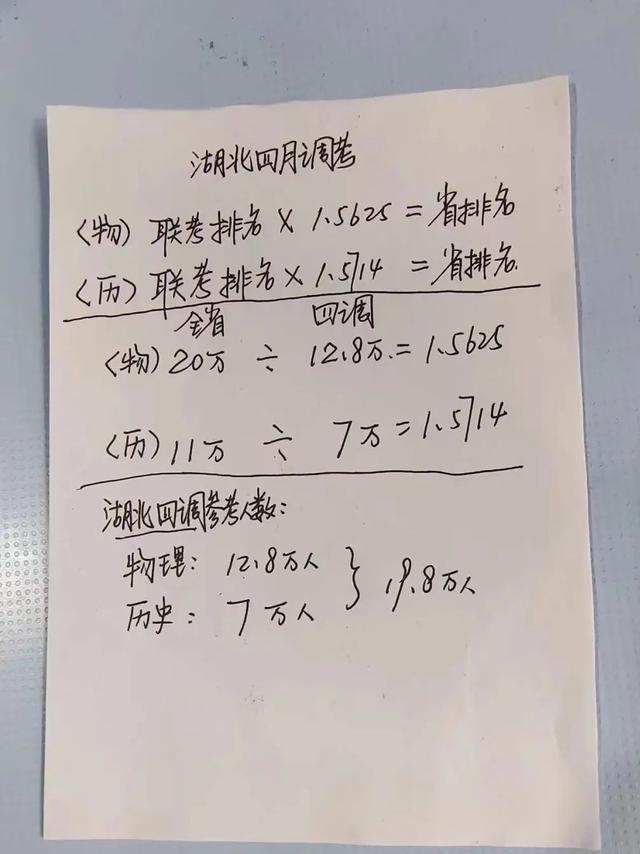 湖北四月调考
〈物〉联考排名 × 1.5625 = 省排名
〈历〉联考排名 × 1.5714 = 省排名.
全省 四调
〈物〉20万 ÷ 12.8万 = 1.5625
〈历〉11万 ÷ 7万 = 1.5714
湖北四调参考人数:
物理: 12.8万人 } 19.8万人
历史: 7万人